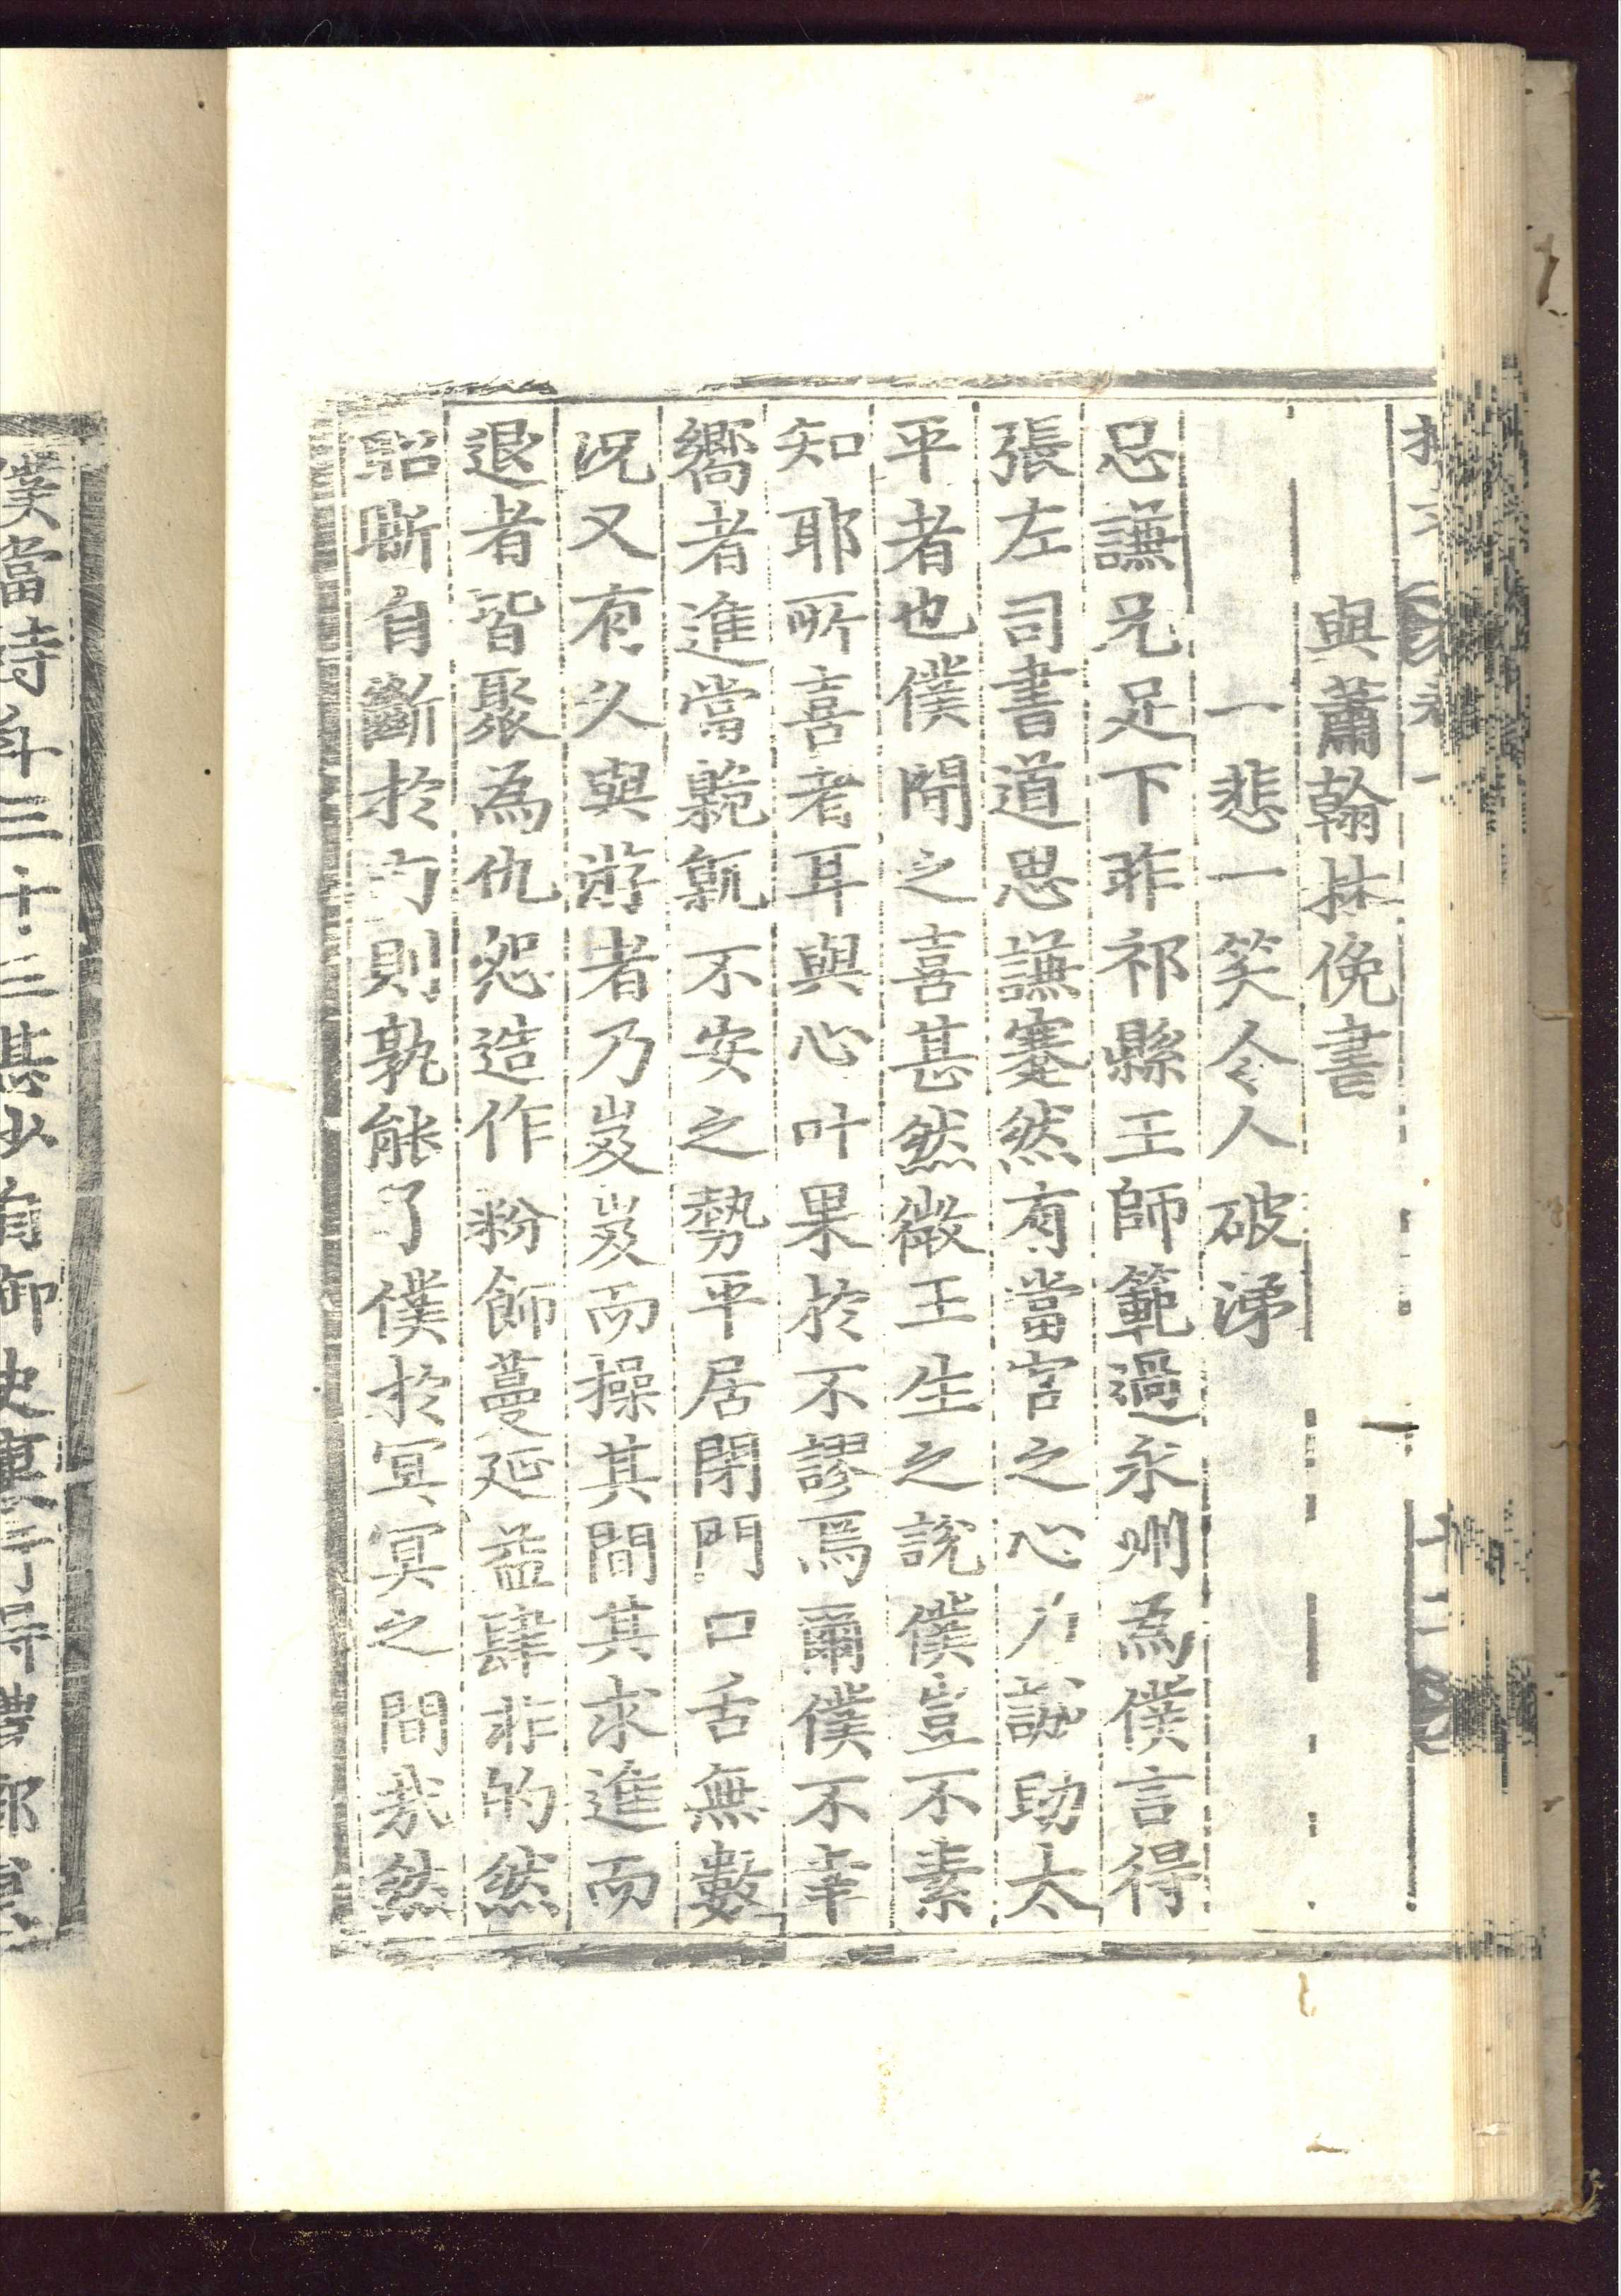 與蕭翰林俛書
一悲一笑令人破涕
思謙兄足下昨祁縣王師範過永州為僕言得
張左司書道思謙蹇然有當官之心乃誠助太
平者也僕聞之喜甚然微王生之說僕豈不素
知耶所喜者耳與心叶果於不謬焉爾僕不幸
嚮者進當臲卼不安之勢平居閉門口舌無數
况又有久與游者乃岌岌而操其間其求進而
退者皆聚為仇怨造作粉飾蔓延益肆非的然
昭晣自斷於內則孰能了僕於冥冥之間哉然
僕當時年三十三甚少自御史裏行得禮部員